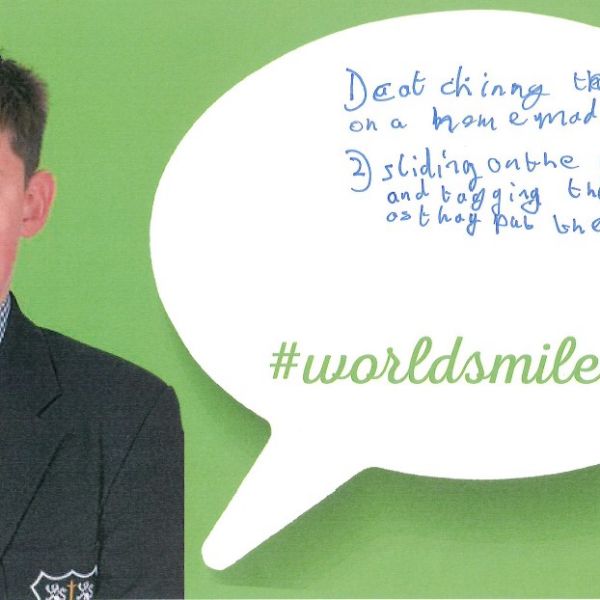 on a homemad
2) sliding on the
and tagging th
as thay put the
#worldsmile